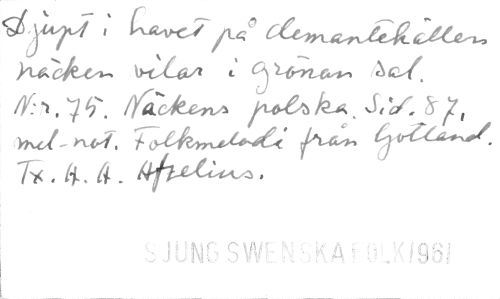 Djupt i havet på demantehällen
näcken vilar i grönan sal.
N:r. 75. Näckens polska. Sid. 87,
mel-not. Folkmelodi från Gotland.
Tx. A. A. Afzelius.
SJUNG SWENSKA FOLK/96/